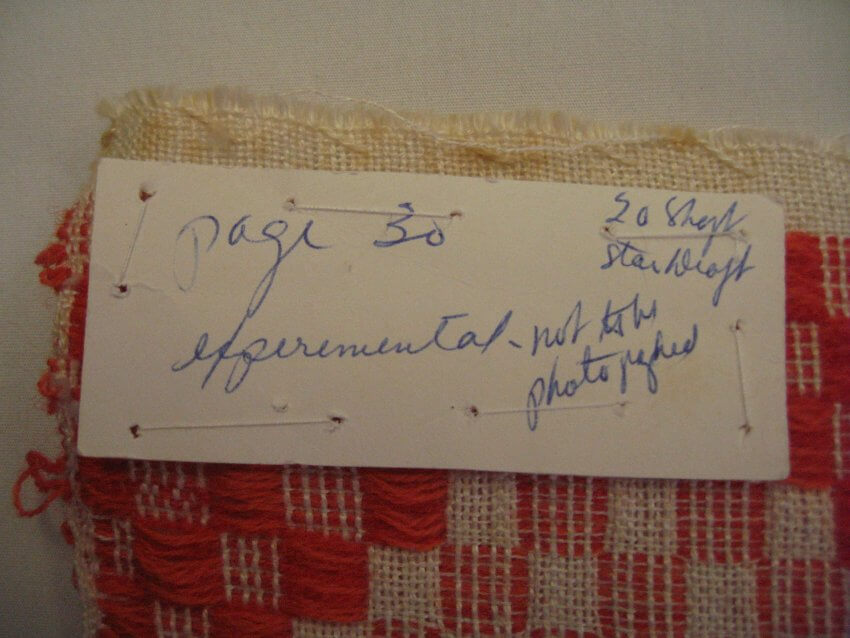 page 30
20 Shaft
Star Draft
experemental - not to be
photographed